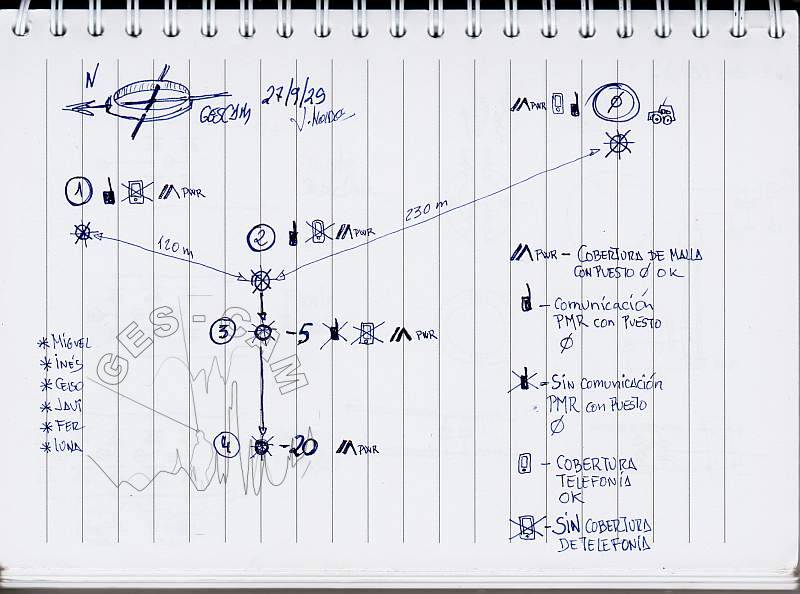 N
GESCAM
27/9/25
//\ PWR
Ø
1
//\ PWR
120 m
2
//\ PWR
230 m
3
-5
//\ PWR
4
-20
//\ PWR
GES-CAM
* MIGUEL
* INÉS
* CELSO
* JAVI
* FER
* LUNA
//\ PWR - COBERTURA DE MALLA
CON PUESTO Ø OK
- COMUNICACIÓN
PMR CON PUESTO
Ø
- SIN COMUNICACIÓN
PMR CON PUESTO
Ø
- COBERTURA
TELEFONÍA
OK
- SIN COBERTURA
DE TELEFONÍA